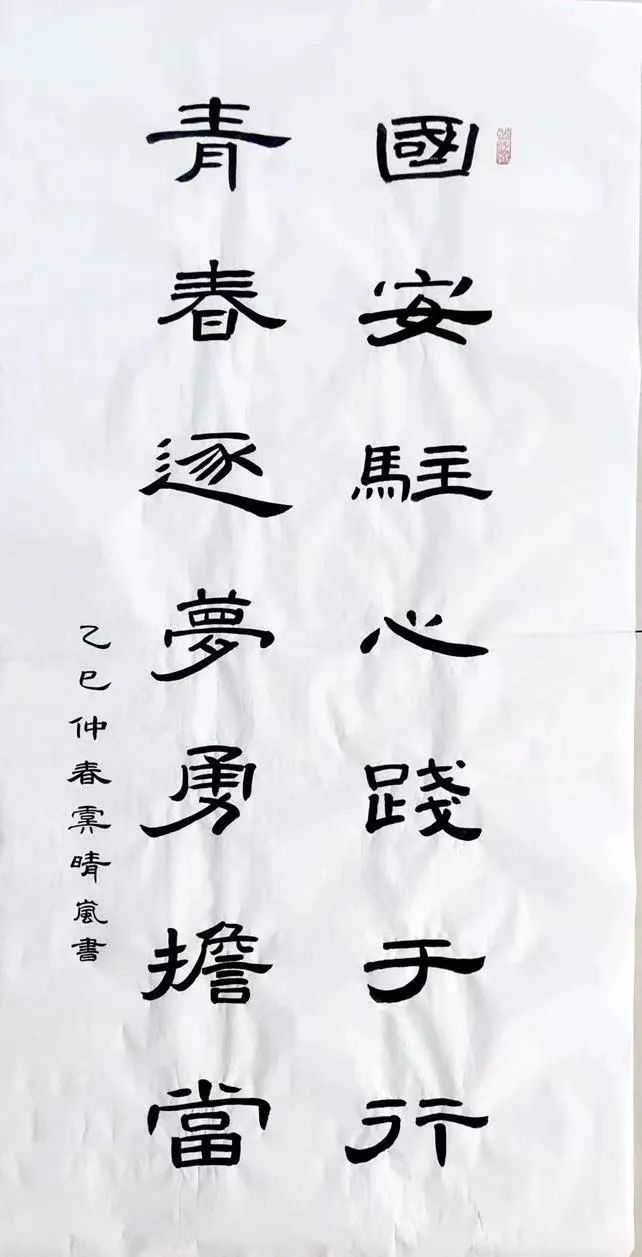 國安駐心踐于行
青春逐夢勇擔當
乙巳仲春雲晴嵐書